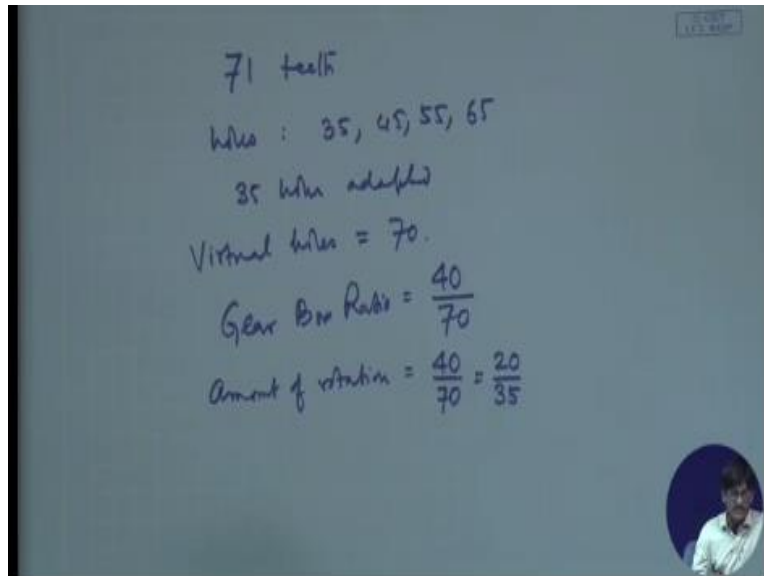 71 teeth
holes : 35, 45, 55, 65
35 holes adopted
Virtual holes = 70.
Gear Box Ratio = 40/70
Amount of rotation = 40/70 = 20/35